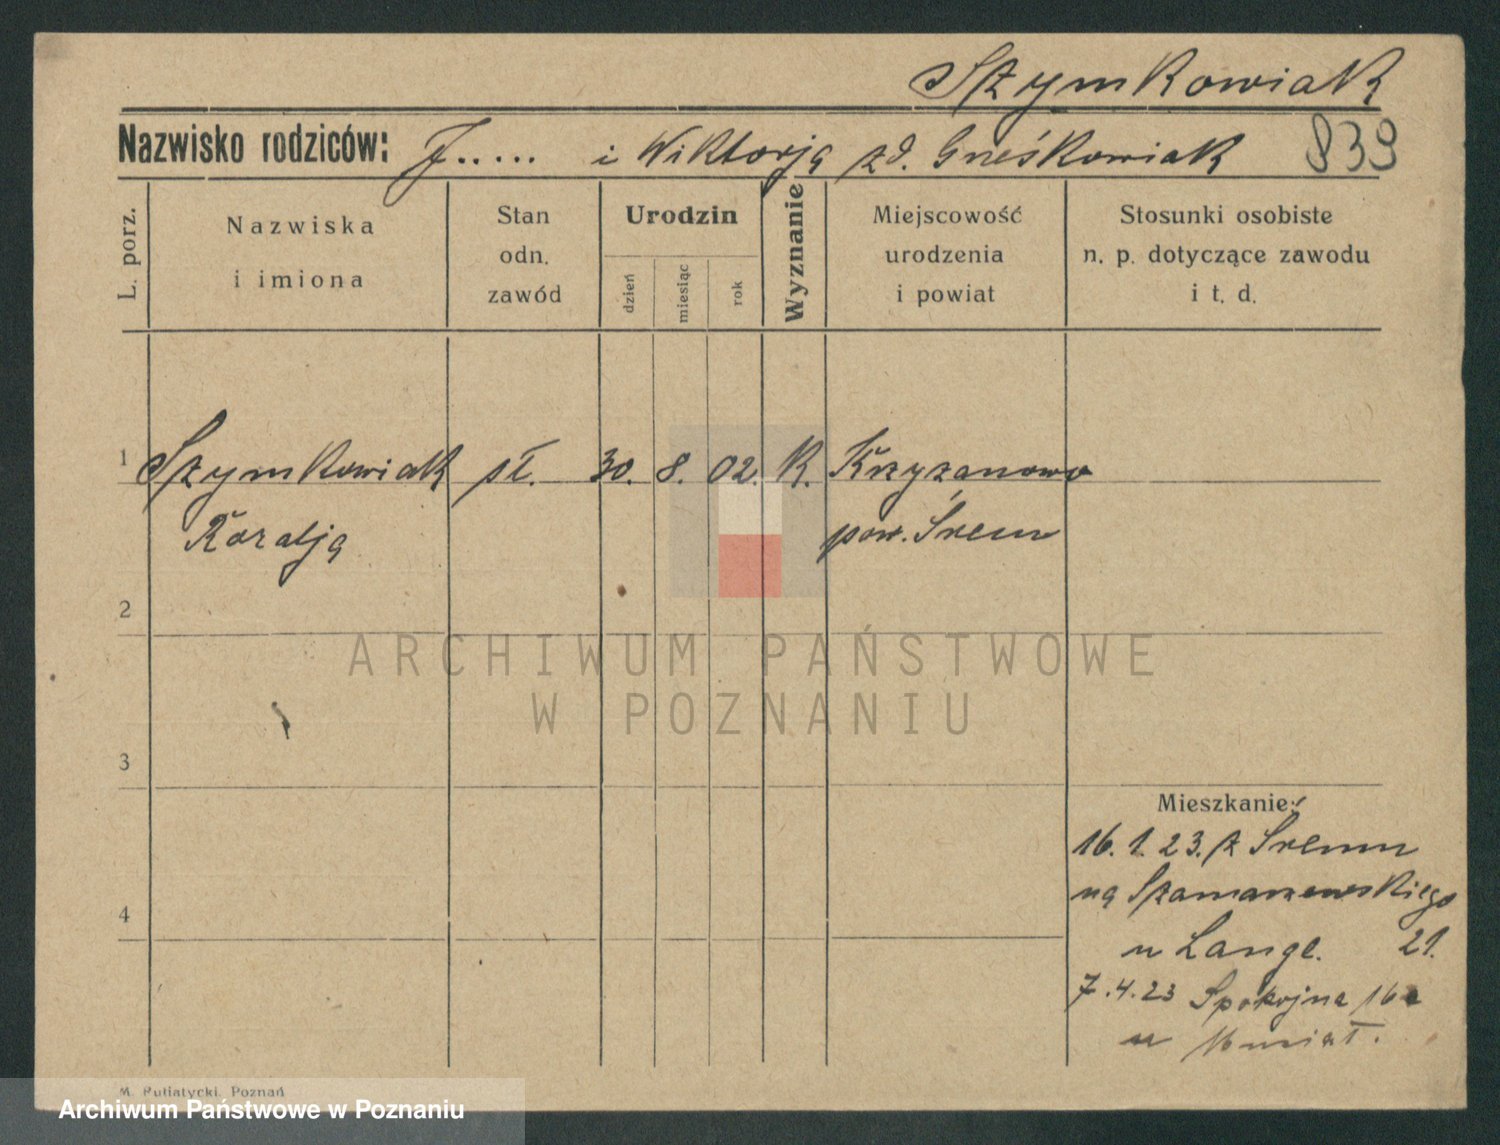 Szymkowiak
Nazwisko rodziców: J..... i Wiktorja zd. Grześkowiak 839
L. porz.
Nazwiska
i imiona
Stan
odn.
zawód
Urodzin
dzień
miesiąc
rok
Wyznanie
Miejscowość
urodzenia
i powiat
Stosunki osobiste
n. p. dotyczące zawodu
i t. d.
1 Szymkowiak sł. 30. 8. 02. K. Krzyzanowo
Rozalja pow. Śrem
2
ARCHIWUM PAŃSTWOWE
W POZNANIU
3
Mieszkanie:
16. 1. 23. z Śremu
na Szamarzewskiego
4
u Lange. 21.
7.4.23 Spokojna 16a
u
M. Putiatycki, Poznań
Archiwum Państwowe w Poznaniu